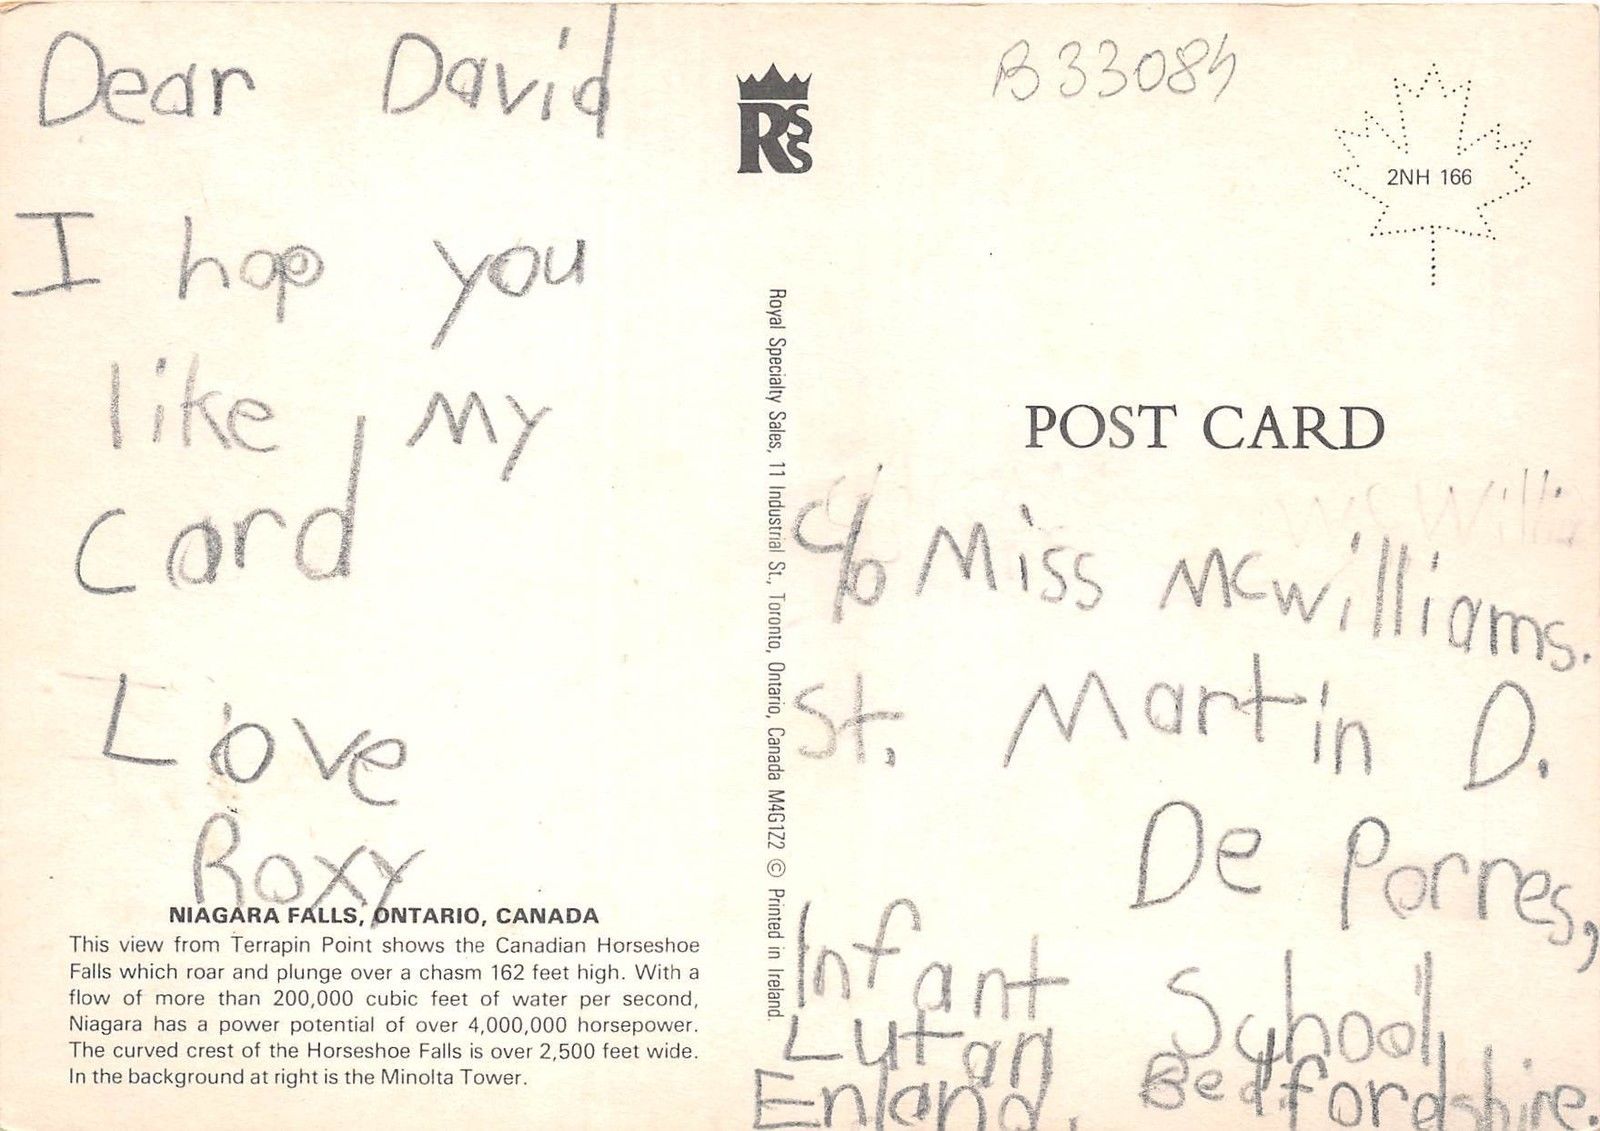 Dear David
I hop you
like my
card
Love
Roxy
NIAGARA FALLS, ONTARIO, CANADA
This view from Terrapin Point shows the Canadian Horseshoe
Falls which roar and plunge over a chasm 162 feet high. With a
flow of more than 200,000 cubic feet of water per second,
Niagara has a power potential of over 4,000,000 horsepower.
The curved crest of the Horseshoe Falls is over 2,500 feet wide.
In the background at right is the Minolta Tower.
RSS
Royal Specialty Sales, 11 Industrial St., Toronto, Ontario, Canada M4G1Z2 © Printed in Ireland.
B33084
2NH 166
POST CARD
c/o Miss McWilliams.
St. Martin D.
De Porres,
Infant School
Lutan Bedfordshire.
Enland.